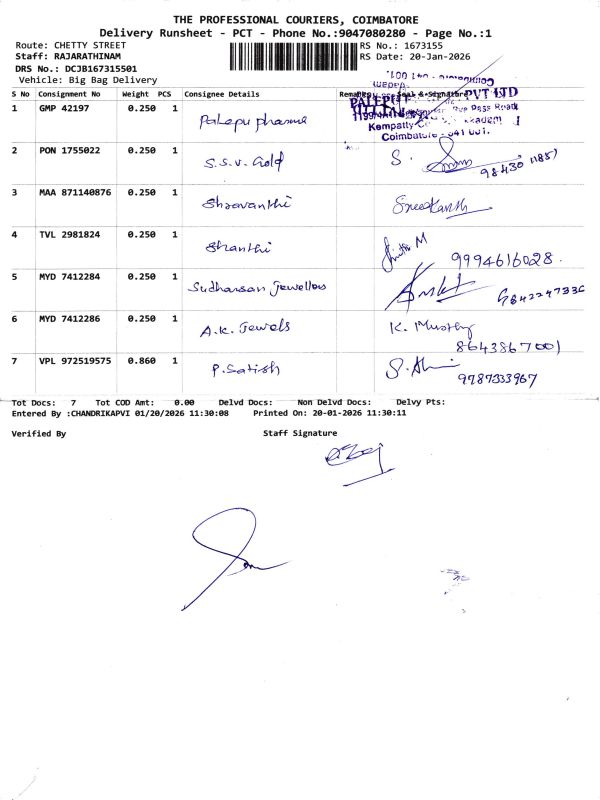 THE PROFESSIONAL COURIERS, COIMBATORE
Delivery Runsheet - PCT - Phone No.:9047080280 - Page No.:1
Route: CHETTY STREET RS No.: 1673155
Staff: RAJARATHINAM RS Date: 20-Jan-2026
DRS No.: DCJB167315501
Vehicle: Big Bag Delivery
S No Consignment No Weight PCS Consignee Details Remarks Seal & Signature
1 GMP 42197 0.250 1 Palepu pharma
PVT LTD
Kempatty
Coimbatore - 641 001.
2 PON 1755022 0.250 1 S.S.V. Gold S.
3 MAA 871140876 0.250 1 Shravanthi Sreekanth
4 TVL 2981824 0.250 1 Shanthi M
9994616028.
5 MYD 7412284 0.250 1 Sudharsan Jewellers
6 MYD 7412286 0.250 1 A.K. Jewels K. Murthy
8643867001
7 VPL 972519575 0.860 1 P. Satish S.
9787333967
Tot Docs: 7 Tot COD Amt: 0.00 Delvd Docs: Non Delvd Docs: Delvy Pts:
Entered By :CHANDRIKAPVI 01/20/2026 11:30:08 Printed On: 20-01-2026 11:30:11
Verified By Staff Signature